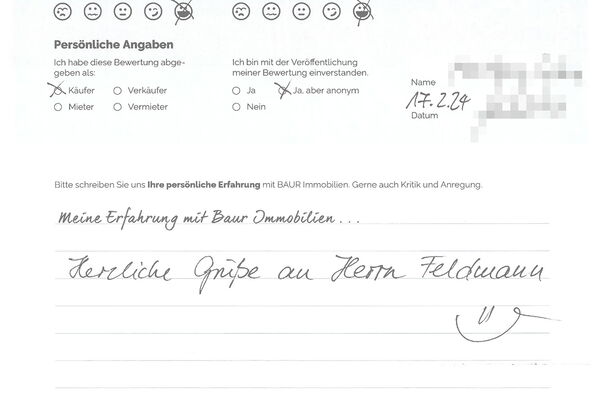 Persönliche Angaben
Ich habe diese Bewertung abge-
geben als:
Käufer
Verkäufer
Mieter
Vermieter
Ich bin mit der Veröffentlichung
meiner Bewertung einverstanden.
Ja
Ja, aber anonym
Nein
Name
17.2.24
Datum
Bitte schreiben Sie uns Ihre persönliche Erfahrung mit BAUR Immobilien. Gerne auch Kritik und Anregung.
Meine Erfahrung mit Baur Immobilien...
Herzliche Grüße an Herrn Feldmann